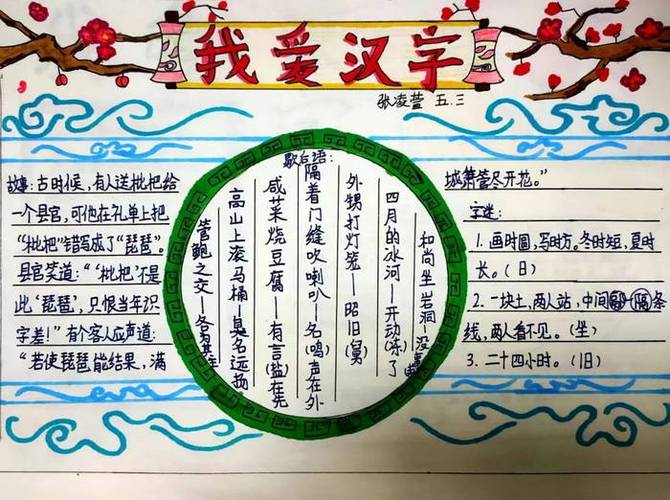 我爱汉字
张凌萱 五.三
故事:古时候,有人送枇杷给
一个县官,可他在礼单上把
“枇杷”错写成了“琵琶”。
县官笑道:“‘枇杷’不是
此‘琵琶’,只恨当年识
字差!”有个客人应声道:
“若使琵琶能结果,满
歇后语:
隔着门缝吹喇叭—名(鸣)声在外
咸菜烧豆腐—有言(盐)在先
高山上滚马桶—臭名远扬
管鲍之交—各为其主
外甥打灯笼—照旧(舅)
四月的冰河—开动(冻)了
和尚坐岩洞—没
城箫管尽开花。”
字谜:
1.画时圆,写时方。冬时短,夏时
长。(日)
2.一块土,两人站,中间隔条
线,两人看不见。(坐)
3.二十四小时。(旧)